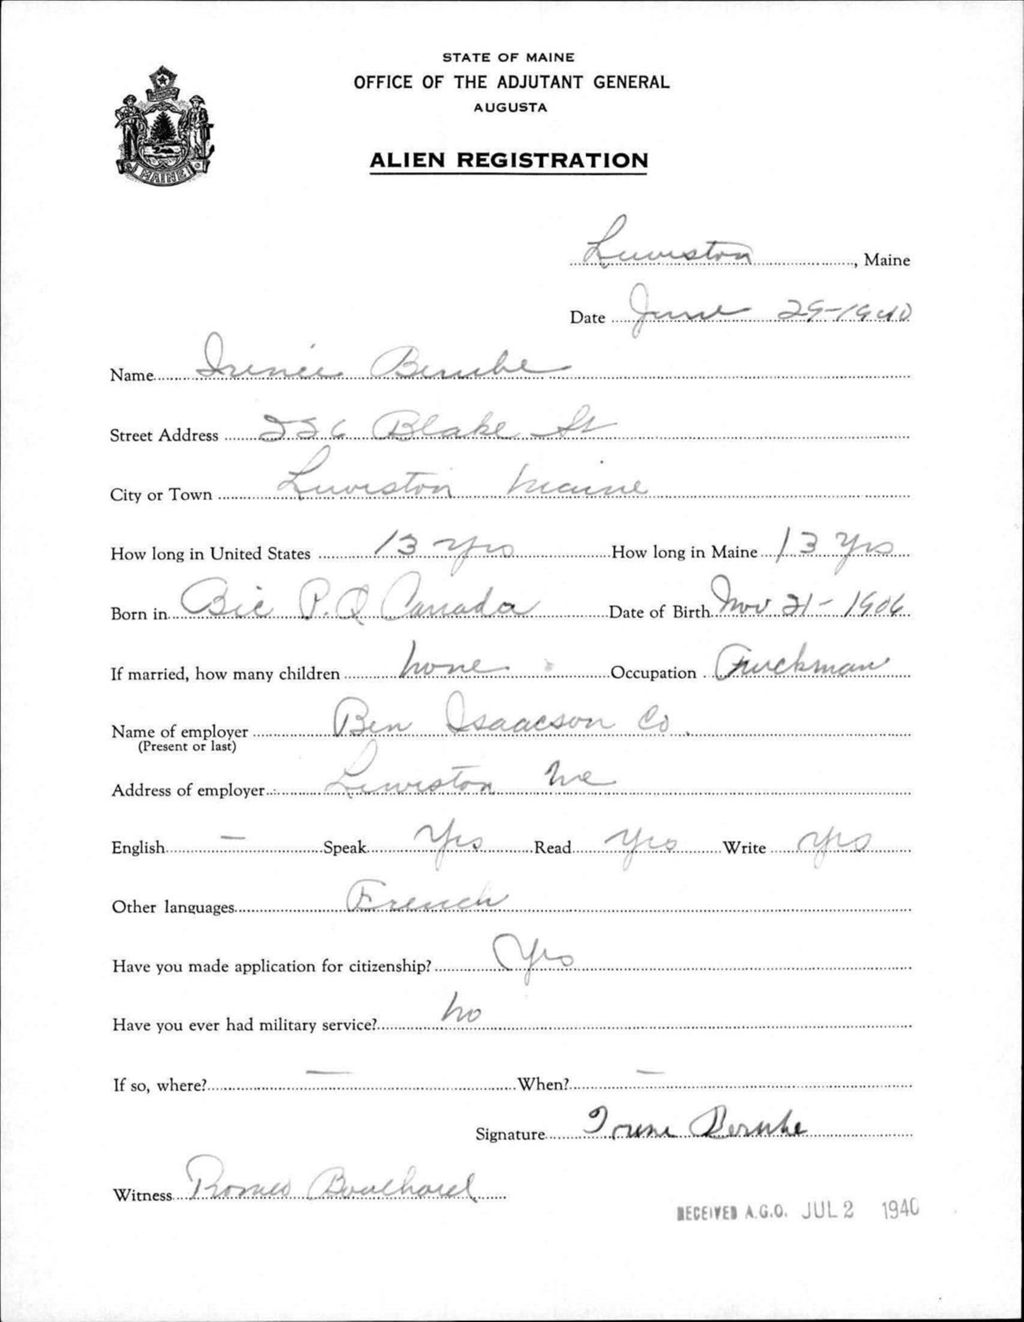 STATE OF MAINE
OFFICE OF THE ADJUTANT GENERAL
AUGUSTA
ALIEN REGISTRATION
MAINE
Lewiston, Maine
Date June 29-1940
Name Irenée Berube
Street Address 226 Blake St
City or Town Lewiston Maine
How long in United States 13 yrs How long in Maine 13 yrs
Born in Bic P.Q Canada Date of Birth Nov 21-1906
If married, how many children none Occupation Truckman
Name of employer Ben Isaacson Co.
(Present or last)
Address of employer Lewiston Me
English — Speak Yes Read Yes Write Yes
Other languages French
Have you made application for citizenship? Yes
Have you ever had military service? no
If so, where? — When? —
Signature Irene Berube
Witness Romeo Bouchard
RECEIVED A.G.O. JUL 2 1940